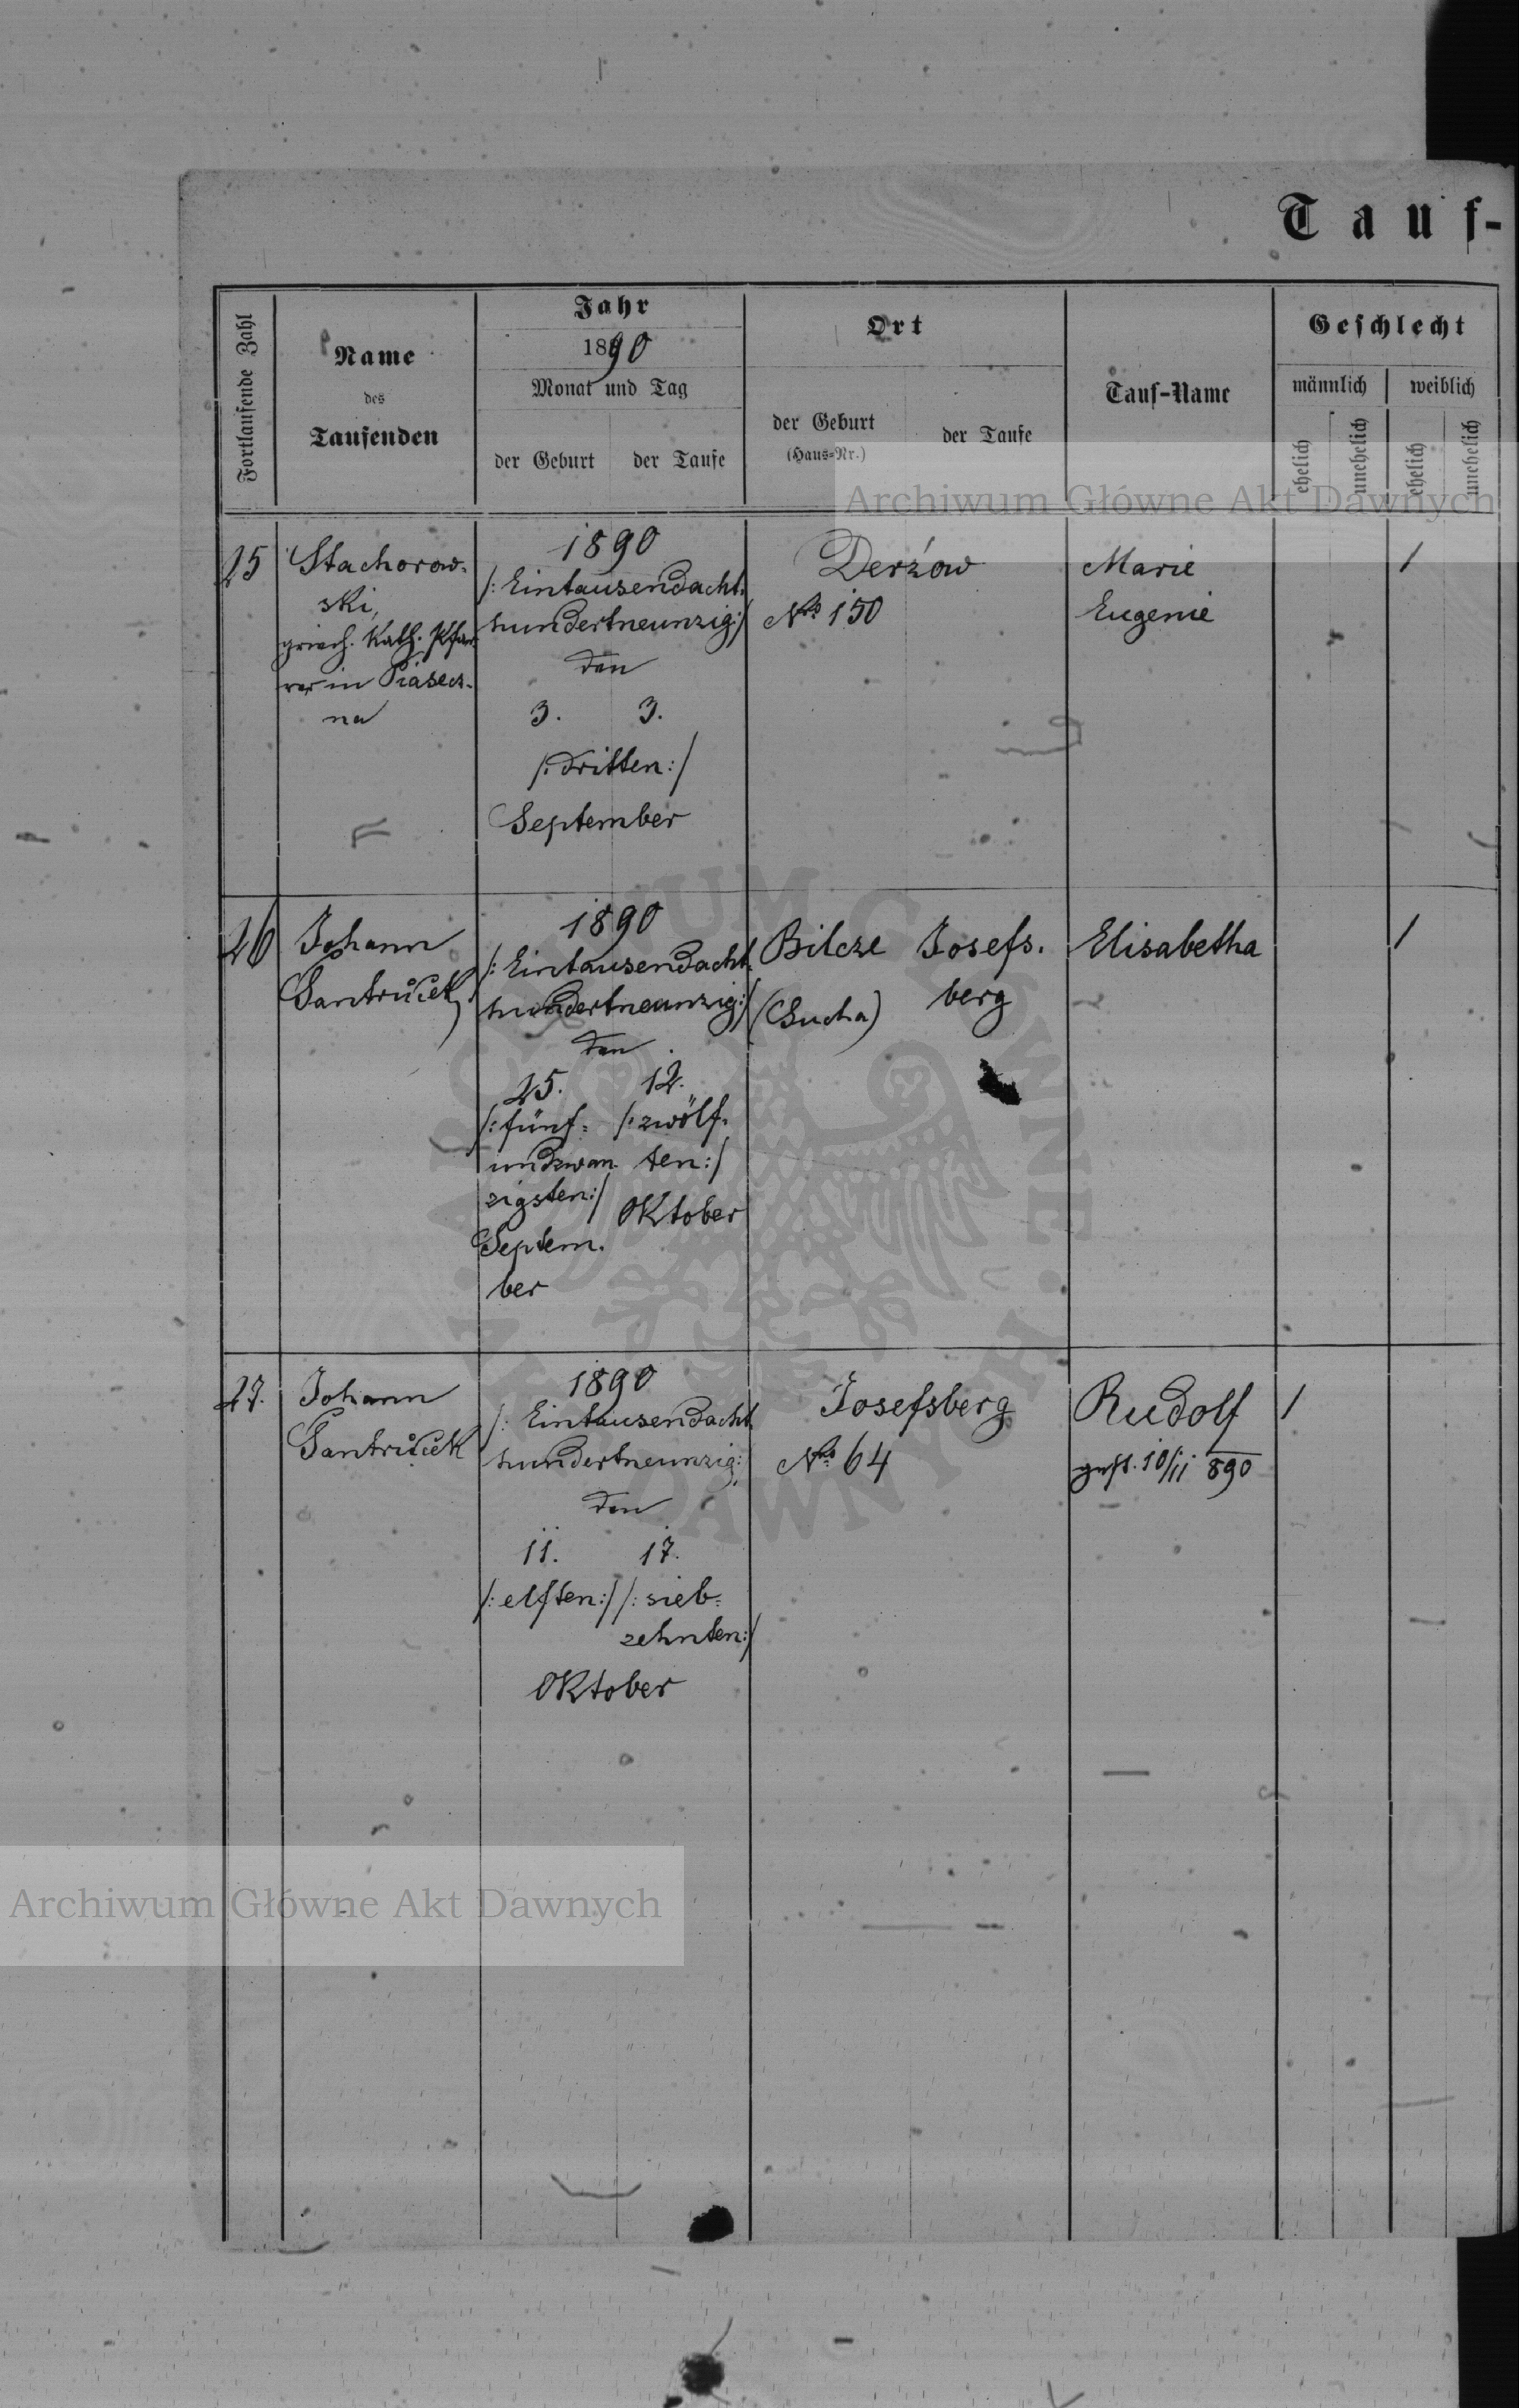 Tauf-
Fortlaufende Zahl
Name
des
Taufenden
Jahr
1890
Monat und Tag
der Geburt
der Taufe
Ort
der Geburt
(Haus-Nr.)
der Taufe
Tauf-Name
Geschlecht
männlich
weiblich
ehelich
unehelich
ehelich
unehelich
Archiwum Główne Akt Dawnych
25
Stachorow-
ski,
griech. kath. Pfar-
rer in Piasecz-
na
1890
/: Eintausendacht-
hundertneunzig :/
den
3. 3.
/: dritten :/
September
Derżow
No 150
Marie
Eugenie
1
26
Johann
Santrůček
1890
/: Eintausendacht-
hundertneunzig :/
den
25.
/: fünf-
undzwan-
zigsten :/
Septem-
ber
12.
/: zwölf-
ten :/
Oktober
Bilcze
(Sucha)
Josefs-
berg
Elisabetha
1
27.
Johann
Santrůček
1890
/: Eintausendacht
hundertneunzig :
den
11. 17.
/: elften :/ /: sieb-
zehnten :/
Oktober
Josefsberg
No 64
Rudolf
gest. 10/11 890
1
Archiwum Główne Akt Dawnych
ARCHIWUM GŁÓWNE AKT DAWNYCH